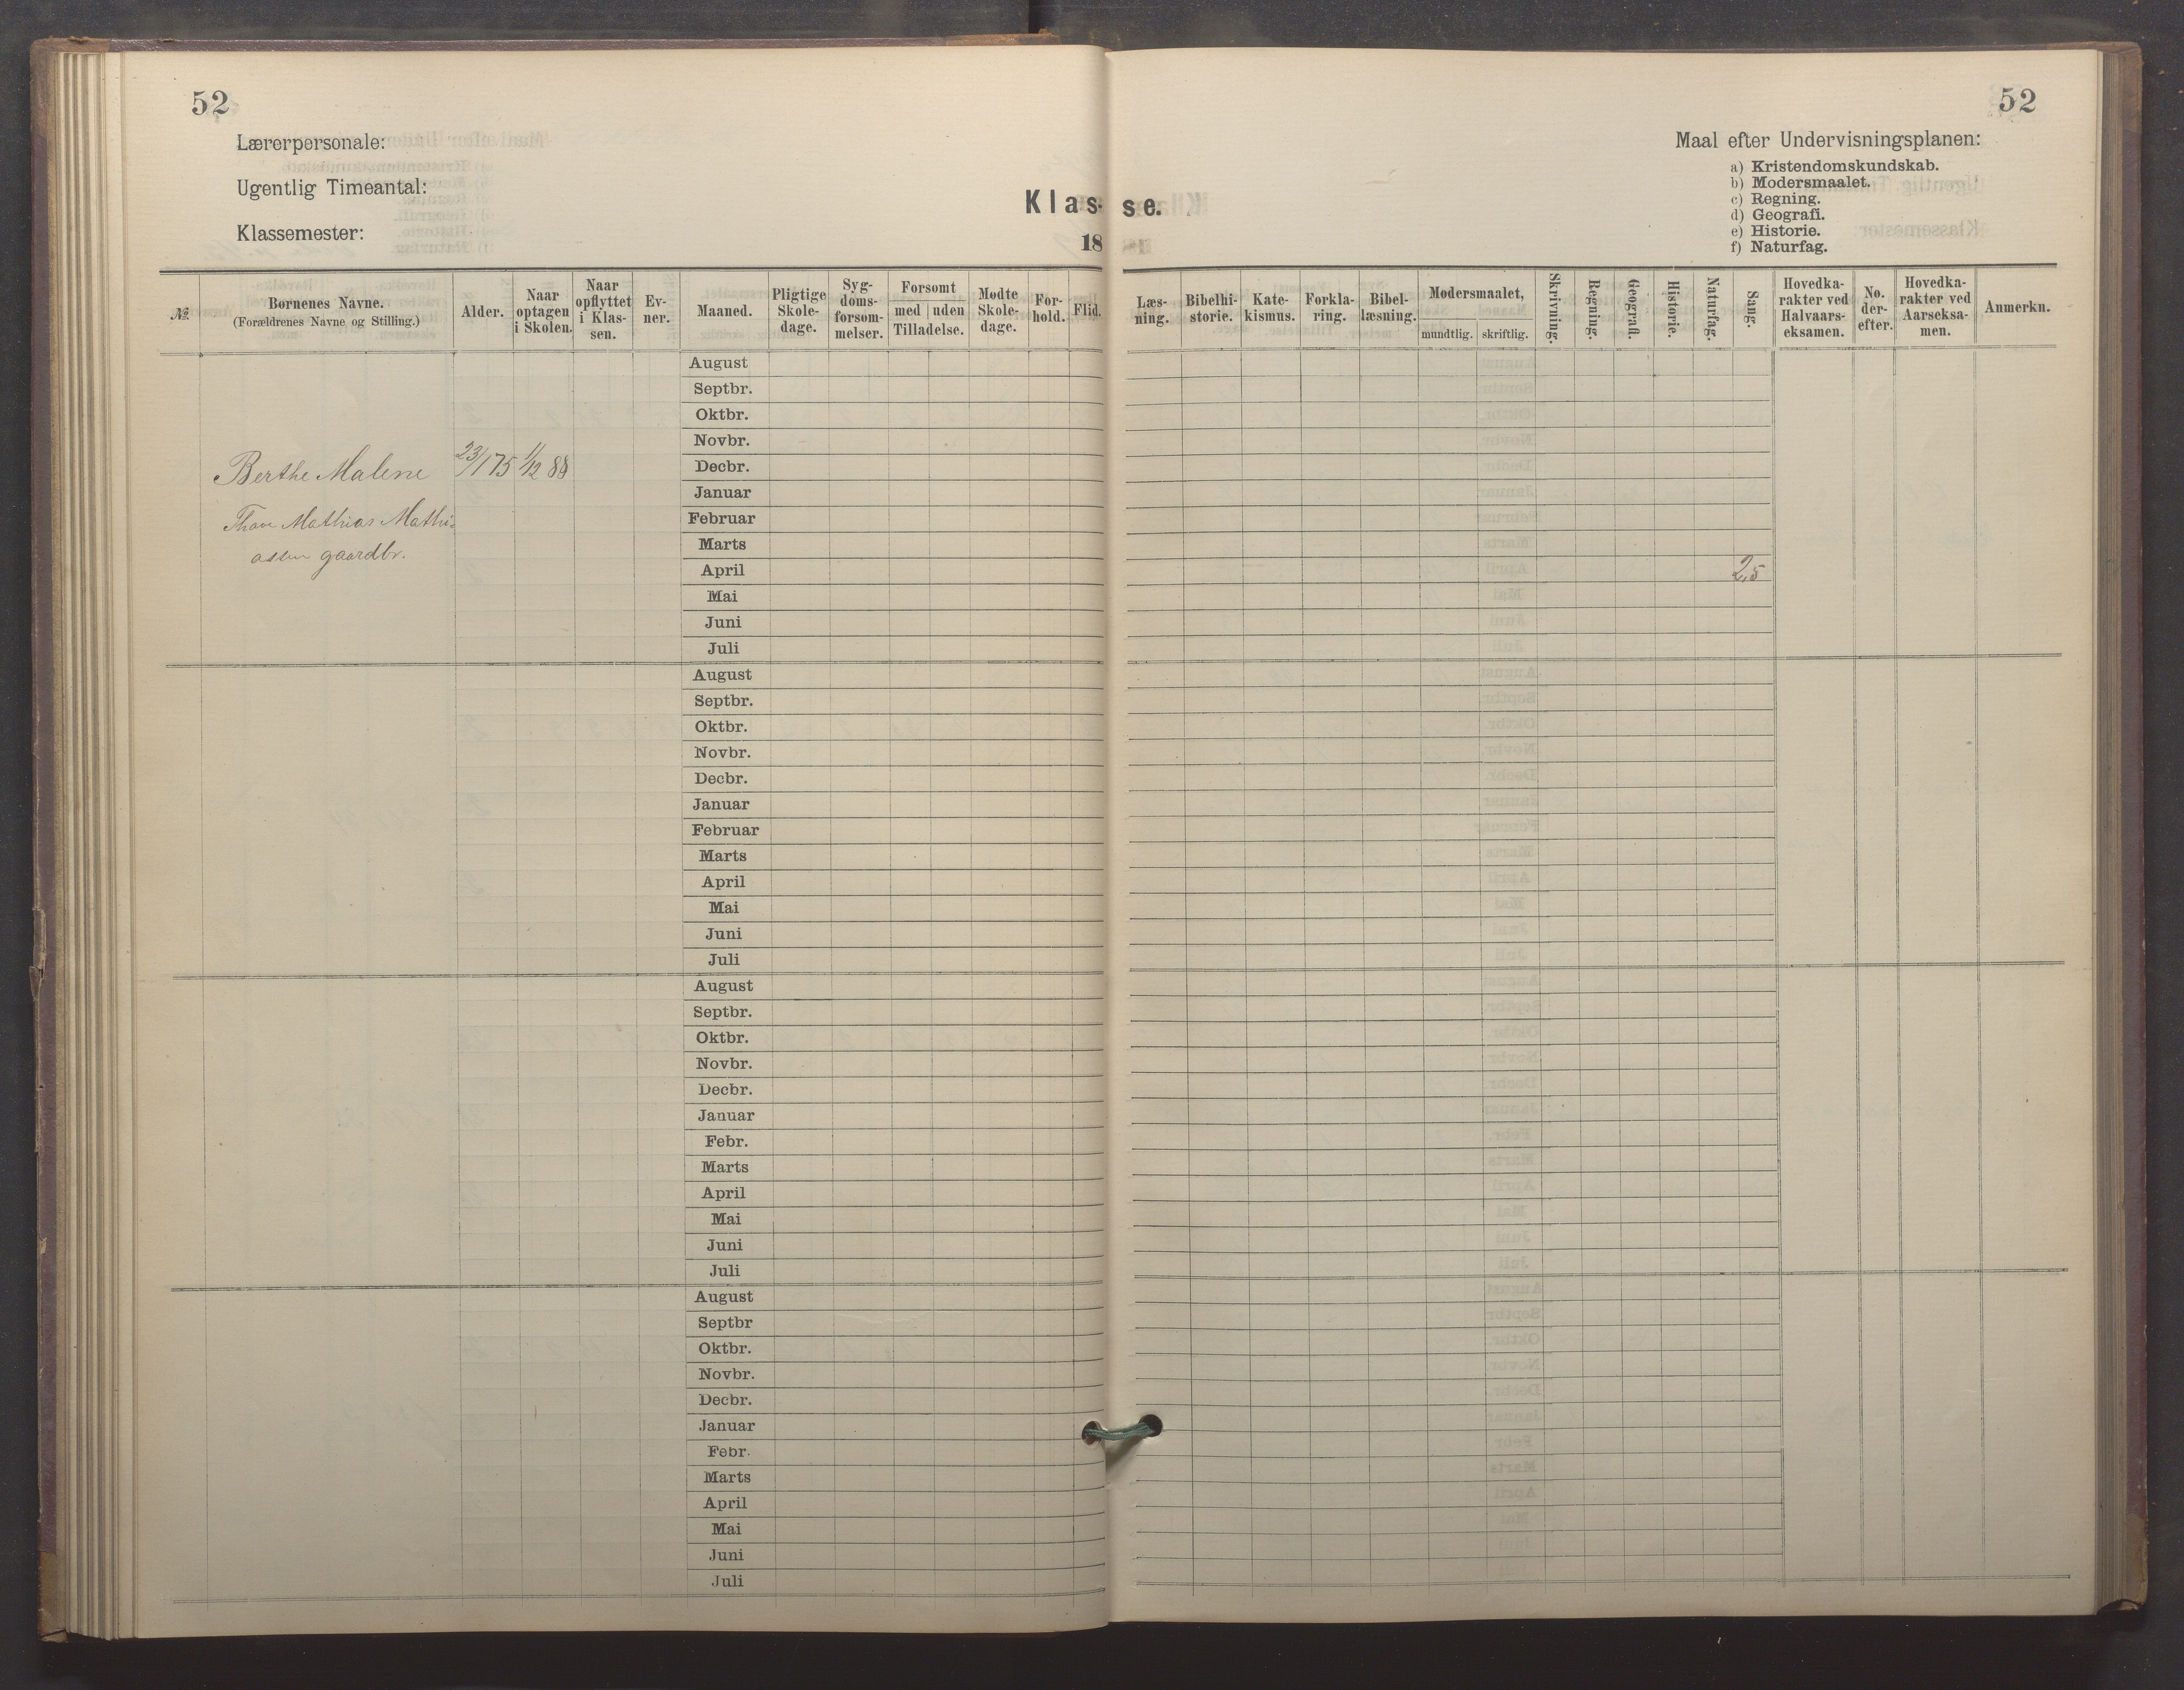 52
52
Lærerpersonale:
Ugentlig Timeantal:
Klassemester:
Klas-
se.
18
Maal efter Undervisningsplanen:
a) Kristendomskundskab.
b) Modersmaalet.
c) Regning.
d) Geografi.
e) Historie.
f) Naturfag.
№
Børnenes Navne.
(Forældrenes Navne og Stilling.)
Alder.
Naar
optagen
i Skolen.
Naar
opflyttet
i Klas-
sen.
Ev-
ner.
Maaned.
Pligtige
Skole-
dage.
Syg-
doms-
forsøm-
melser.
Forsømt
med uden
Tilladelse.
Mødte
Skole-
dage.
For-
hold.
Flid.
Læs-
ning.
Bibelhi-
storie.
Kate-
kismus.
Forkla-
ring.
Bibel-
læsning.
Modersmaalet,
mundtlig. skriftlig.
Skrivning.
Regning.
Geografi.
Historie.
Naturfag.
Sang.
Hovedka-
rakter ved
Halvaars-
eksamen.
No.
der-
efter.
Hovedka-
rakter ved
Aarseksa-
men.
Anmerkn.
August
Septbr.
Oktbr.
Novbr.
Berthe Malene 23/1 75 1/12 88
Decbr.
Januar
Mathias Mathi-
Februar
assen gaardbr.
Marts
April 2,5
Mai
Juni
Juli
August
Septbr.
Oktbr.
Novbr.
Decbr.
Januar
Februar
Marts
April
Mai
Juni
Juli
August
Septbr.
Oktbr.
Novbr.
Decbr.
Januar
Febr.
Marts
April
Mai
Juni
Juli
August
Septbr
Oktbr.
Novbr.
Decbr.
Januar
Febr.
Marts
April
Mai
Juni
Juli